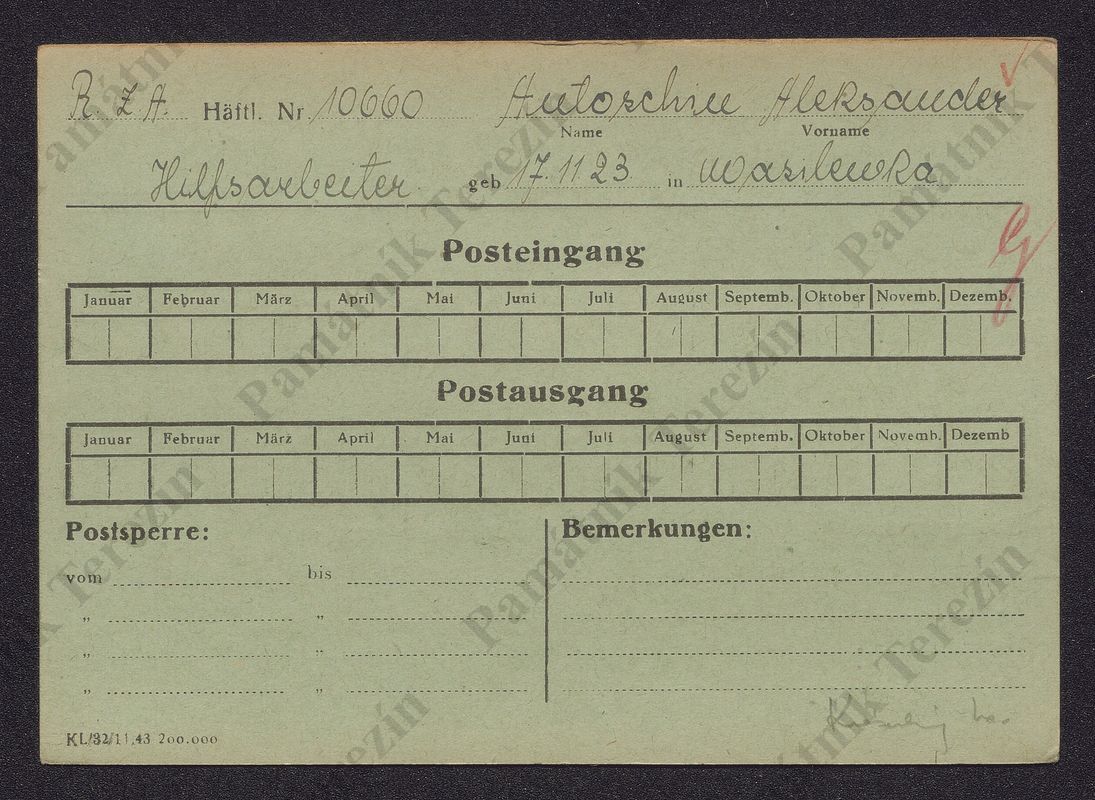 R. Z A. Häftl. Nr. 10660 Autoschin Aleksander
Name Vorname
Hilfsarbeiter geb 17.11.23. in Wasilewka
Posteingang
Januar Februar März April Mai Juni Juli August Septemb. Oktober Novemb. Dezemb.
Postausgang
Januar Februar März April Mai Juni Juli August Septemb. Oktober Novemb. Dezemb
Postsperre: Bemerkungen:
vom bis
„ „
„ „
„ „
KL/32/11.43 200.000
Památník Terezín
Památník Terezín
Památník Terezín
Památník Terezín